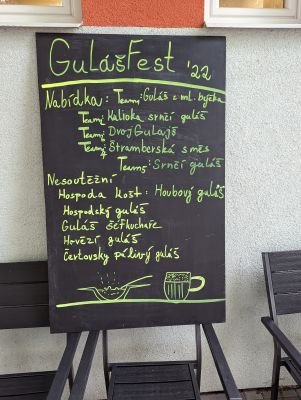 GulášFest '22
Nabídka: Team1: Guláš z ml. býčka
Team2: Kalioka srnčí guláš
Team3: DvojGulajš
Team4: Štramberská směs
Team5: Srnčí guláš
Nesoutěžní
Hospoda Košt: Houbový guláš
Hospodský guláš
Guláš šéfkuchaře
Hovězí guláš
Čertovsky pálivý guláš